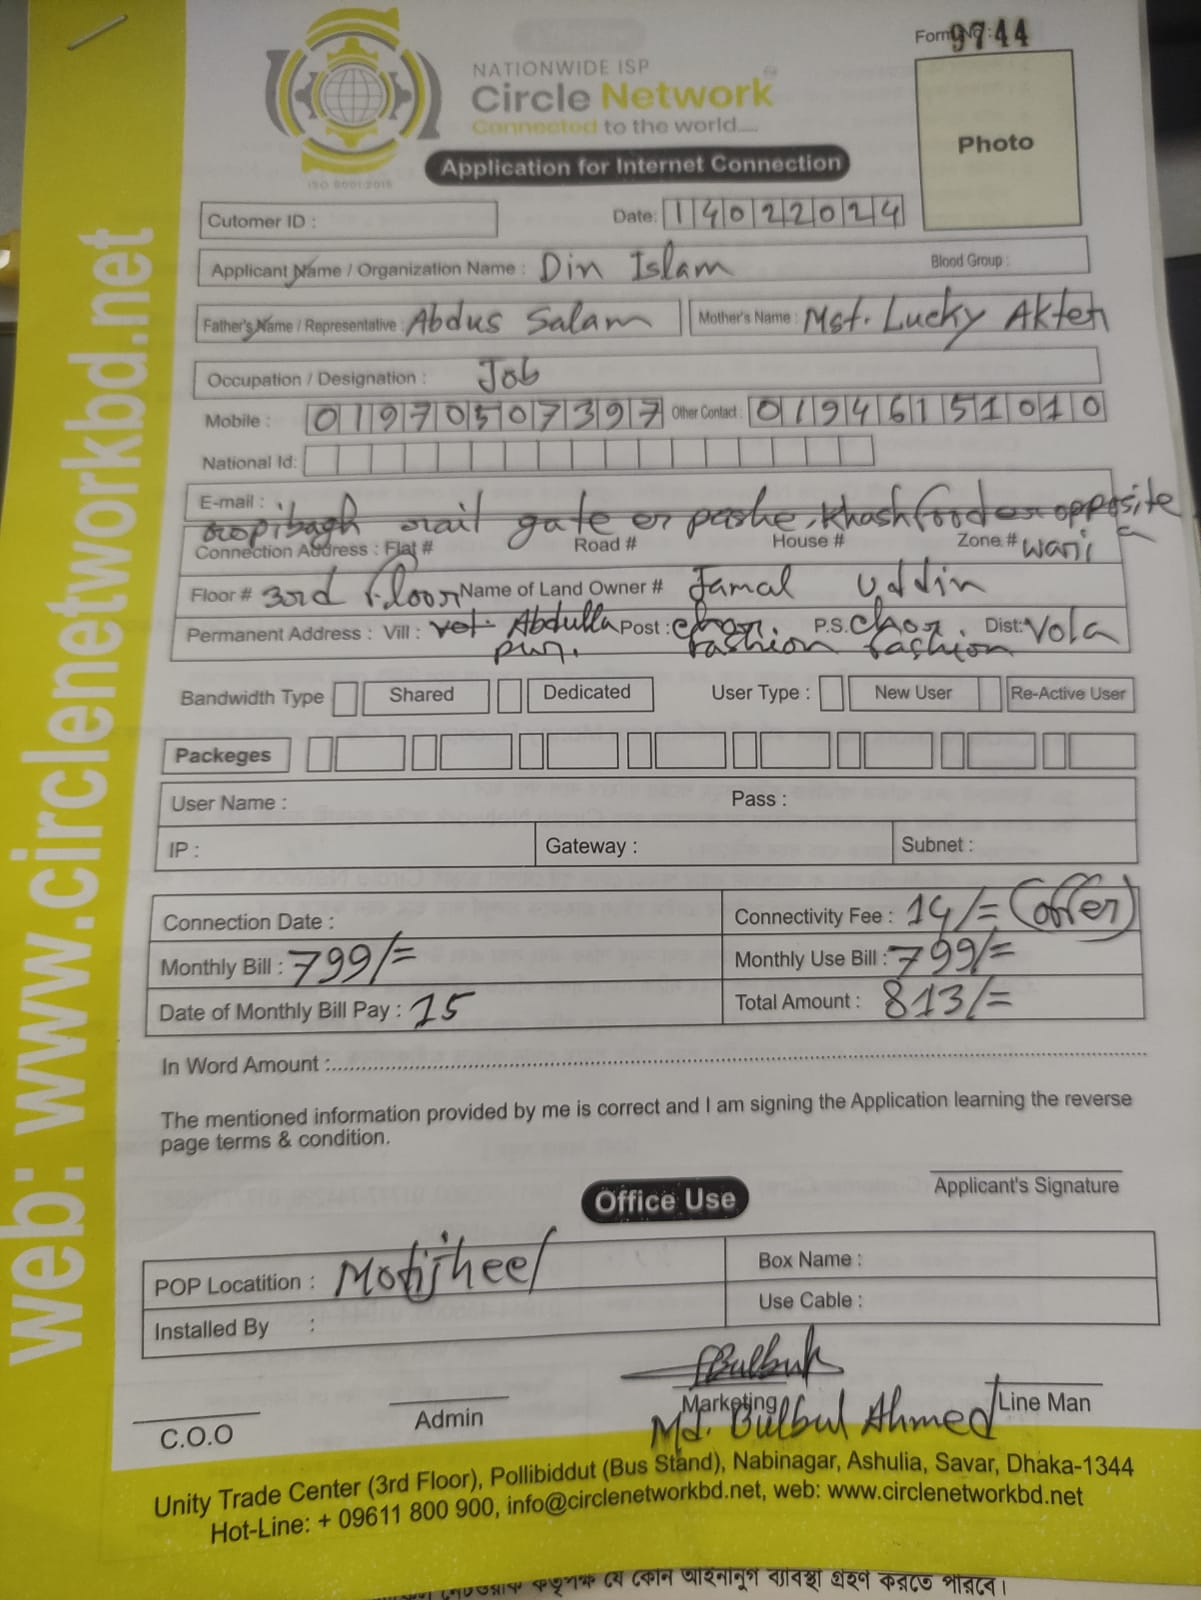 Form No : 9744
NATIONWIDE ISP
Circle Network
Connected to the world.....
ISO 9001:2015
Application for Internet Connection
Photo
Cutomer ID :
Date: 14022024
Applicant Name / Organization Name : Din Islam Blood Group :
Father's Name / Representative : Abdus Salam Mother's Name : Mst. Lucky Akter
Occupation / Designation : Job
Mobile : 01970507397 Other Contact : 01946151010
National Id:
E-mail :
gopibagh rail gate er pashe, khashfood er opposite
Connection Address : Flat # Road # House # Zone # wari
Floor # 3rd Floor Name of Land Owner # Jamal Uddin
Permanent Address : Vill : Abdulla Post : Char P.S. Char Dist: Vola
pur. fashion fashion
Bandwidth Type Shared Dedicated User Type : New User Re-Active User
Packeges
User Name : Pass :
IP : Gateway : Subnet :
Connection Date : Connectivity Fee : 14/= (offer)
Monthly Bill : 799/= Monthly Use Bill : 799/=
Date of Monthly Bill Pay : 15 Total Amount : 813/=
In Word Amount :
The mentioned information provided by me is correct and I am signing the Application learning the reverse
page terms & condition.
Applicant's Signature
Office Use
POP Locatition : Motijheel Box Name :
Installed By : Use Cable :
Bulbul
C.O.O Admin Marketing Line Man
Md. Bulbul Ahmed
Unity Trade Center (3rd Floor), Pollibiddut (Bus Stand), Nabinagar, Ashulia, Savar, Dhaka-1344
Hot-Line: + 09611 800 900, info@circlenetworkbd.net, web: www.circlenetworkbd.net
web: www.circlenetworkbd.net
কতৃপক্ষ যে কোন আইনানুগ ব্যাবস্থা গ্রহণ করতে পারবে।